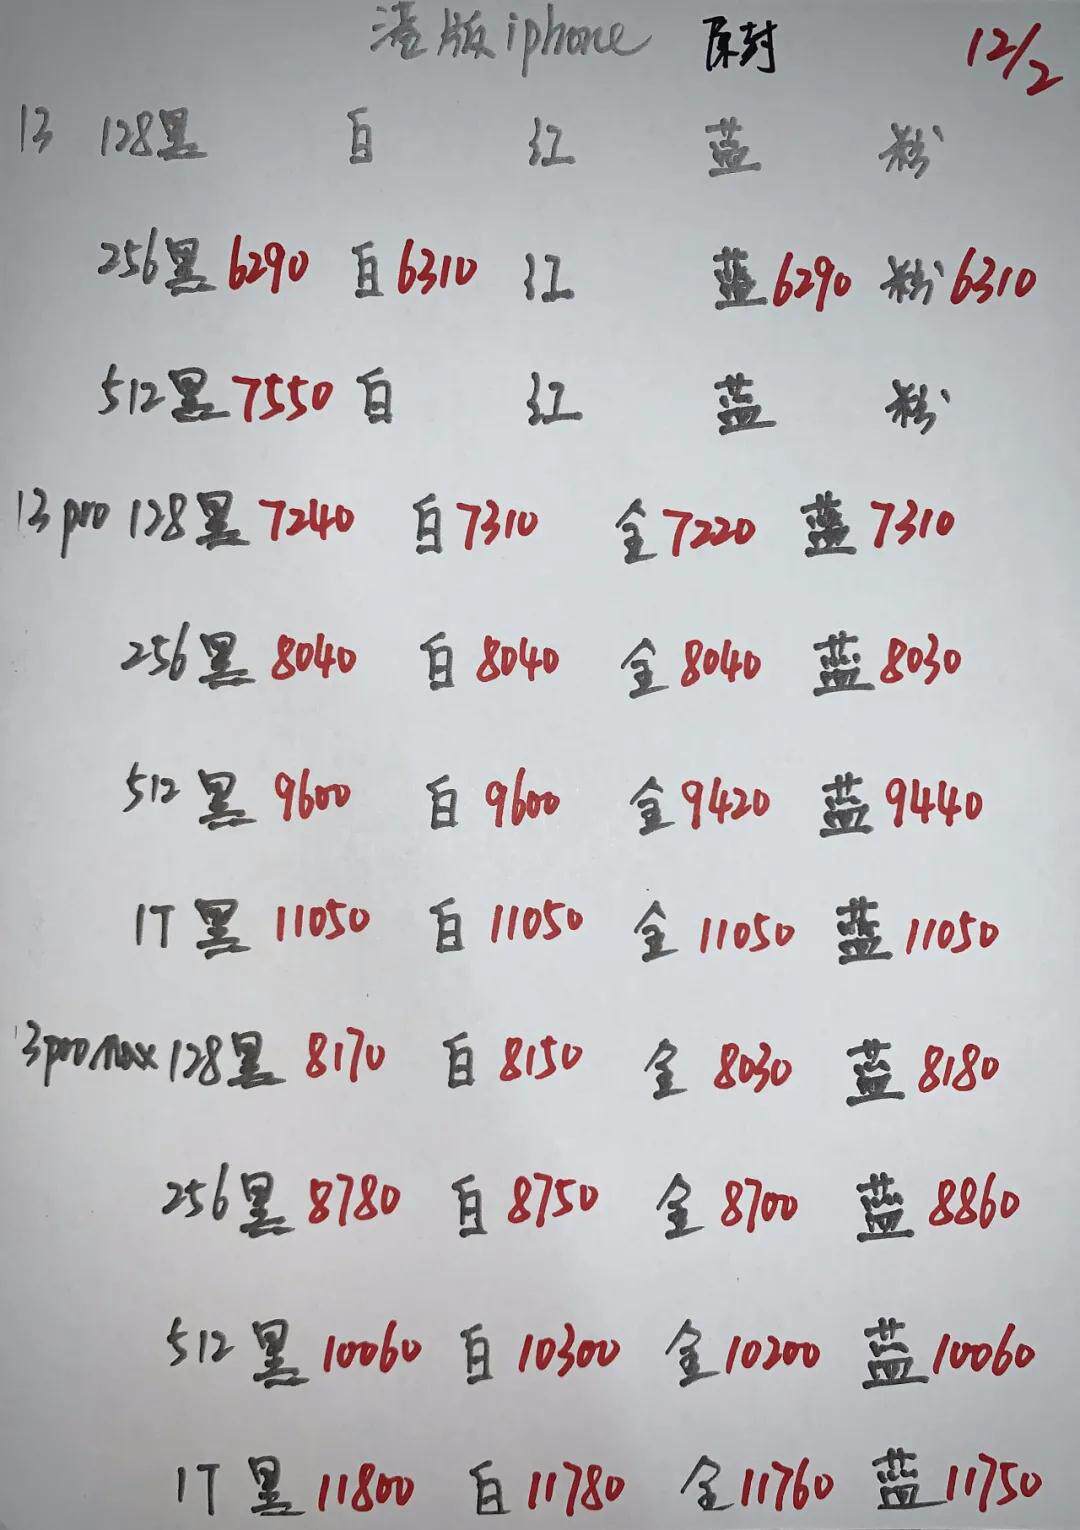 港版iphone 原封 12/2
13 128黑 白 红 蓝 粉
256黑6290 白6310 红 蓝6290 粉6310
512黑7550 白 红 蓝 粉
13pro 128黑7240 白7310 金7220 蓝7310
256黑8040 白8040 金8040 蓝8030
512黑9600 白9600 金9420 蓝9440
1T黑11050 白11050 金11050 蓝11050
13promax 128黑8170 白8150 金8030 蓝8180
256黑8780 白8750 金8700 蓝8860
512黑10060 白10300 金10200 蓝10060
1T黑11800 白11780 金11760 蓝11750